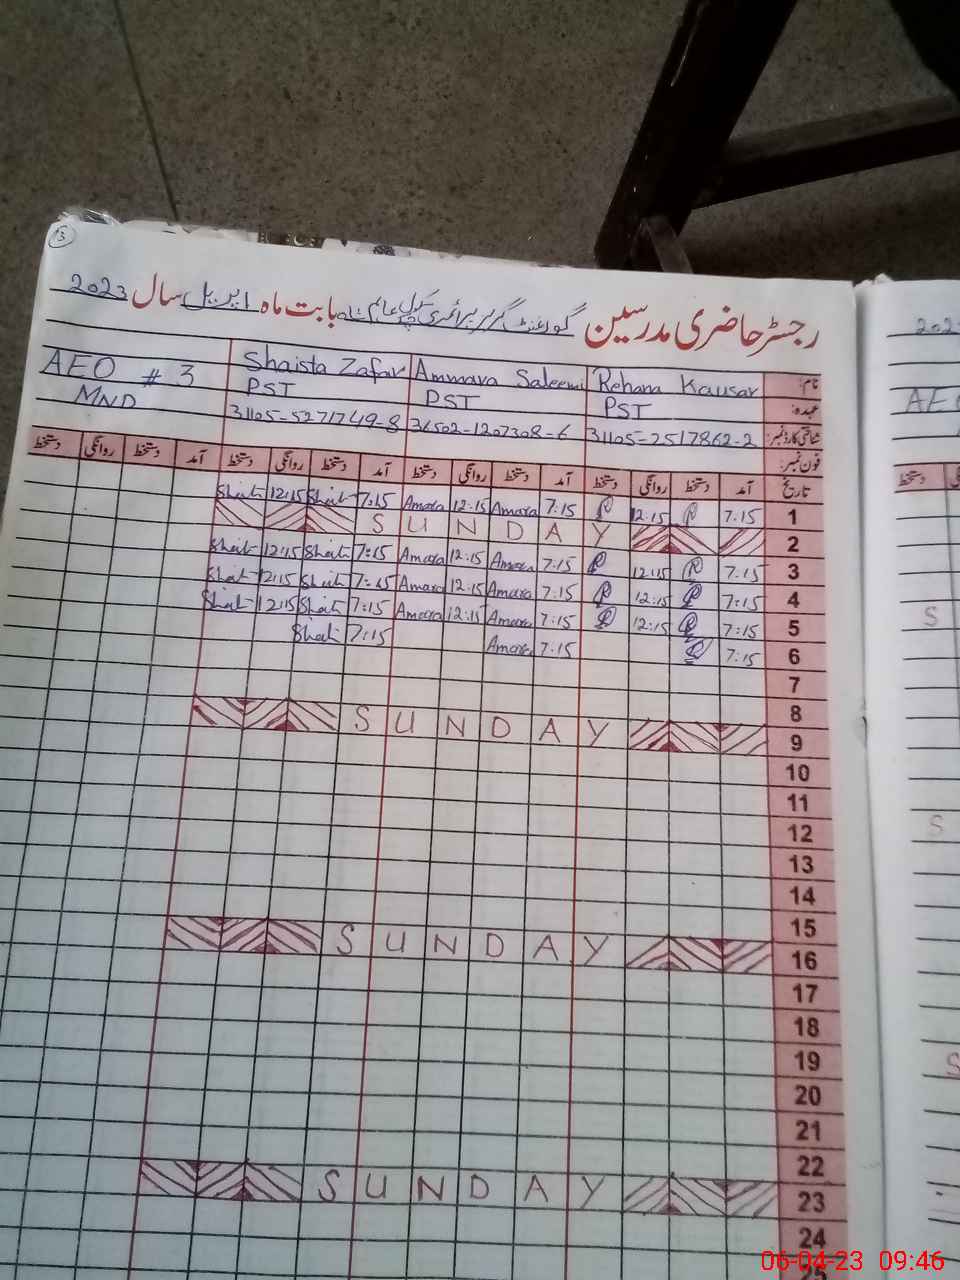 3
رجسٹر حاضری مدرسین گورنمنٹ گرلز پرائمری سکول عالم شاہ بابت ماہ اپریل سال 2023
نام: Rehana Kausar Ammara Saleemi Shaista Zafar AEO # 3
عہدہ: PST PST PST MND
شناختی کارڈ نمبر: 31105-2517862-2 36502-1207308-6 31105-5271749-8
فون نمبر:
تاریخ آمد دستخط روانگی دستخط آمد دستخط روانگی دستخط آمد دستخط روانگی دستخط آمد دستخط روانگی دستخط
1 7:15 R 12:15 R 7:15 Amara 12:15 Amara 7:15 Shait 12:15 Shait
2 SUNDAY
3 7:15 R 12:15 R 7:15 Amara 12:15 Amara 7:15 Shait 12:15 Shait
4 7:15 R 12:15 R 7:15 Amara 12:15 Amara 7:15 Shait 12:15 Shait
5 7:15 R 12:15 R 7:15 Amara 12:15 Amara 7:15 Shait 12:15 Shait
6 7:15 R 7:15 Amara 7:15 Shait
7
8
9 SUNDAY
10
11
12
13
14
15
16 SUNDAY
17
18
19
20
21
22
23 SUNDAY
24
25
202
AE
دستخط
S
S
S
06-04-23 09:46